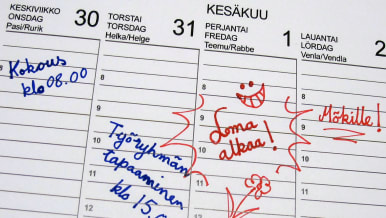 KESÄKUU
KESKIVIIKKO
ONSDAG
Pasi/Rurik
30
TORSTAI
TORSDAG
Helka/Helge
31
PERJANTAI
FREDAG
Teemu/Rabbe
1
LAUANTAI
LÖRDAG
Venla/Vendla
2
Kokous
klo 08.00
8
9
10
11
12
8
9
10
11
Työryhmän
tapaaminen
klo 15.0
8
9
10
11
Loma
alkaa!
8
9
10
11
Mökille!